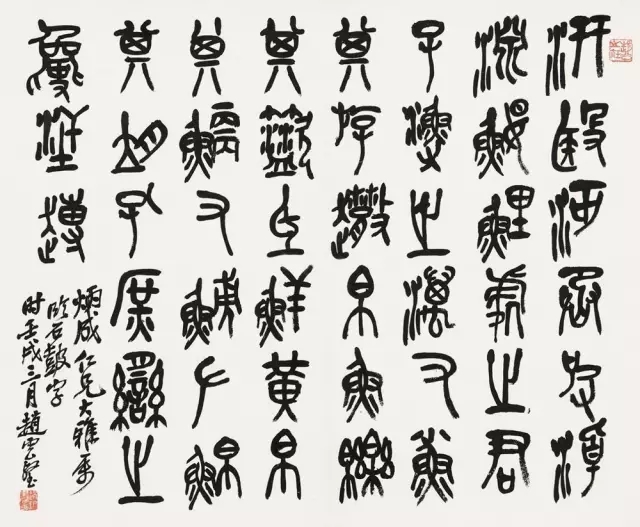 汧殹沔丞皮淖
淵鰋鯉處之君
子漁之澫又小魚
其斿趣帛魚皪
其盜氐鮮黃帛
其鯿又鰟又鮊
其朔孔庶臠之
夐汗趕
炳成仁兄大雅屬
臨石鼓字
時壬戌三月趙雲壑